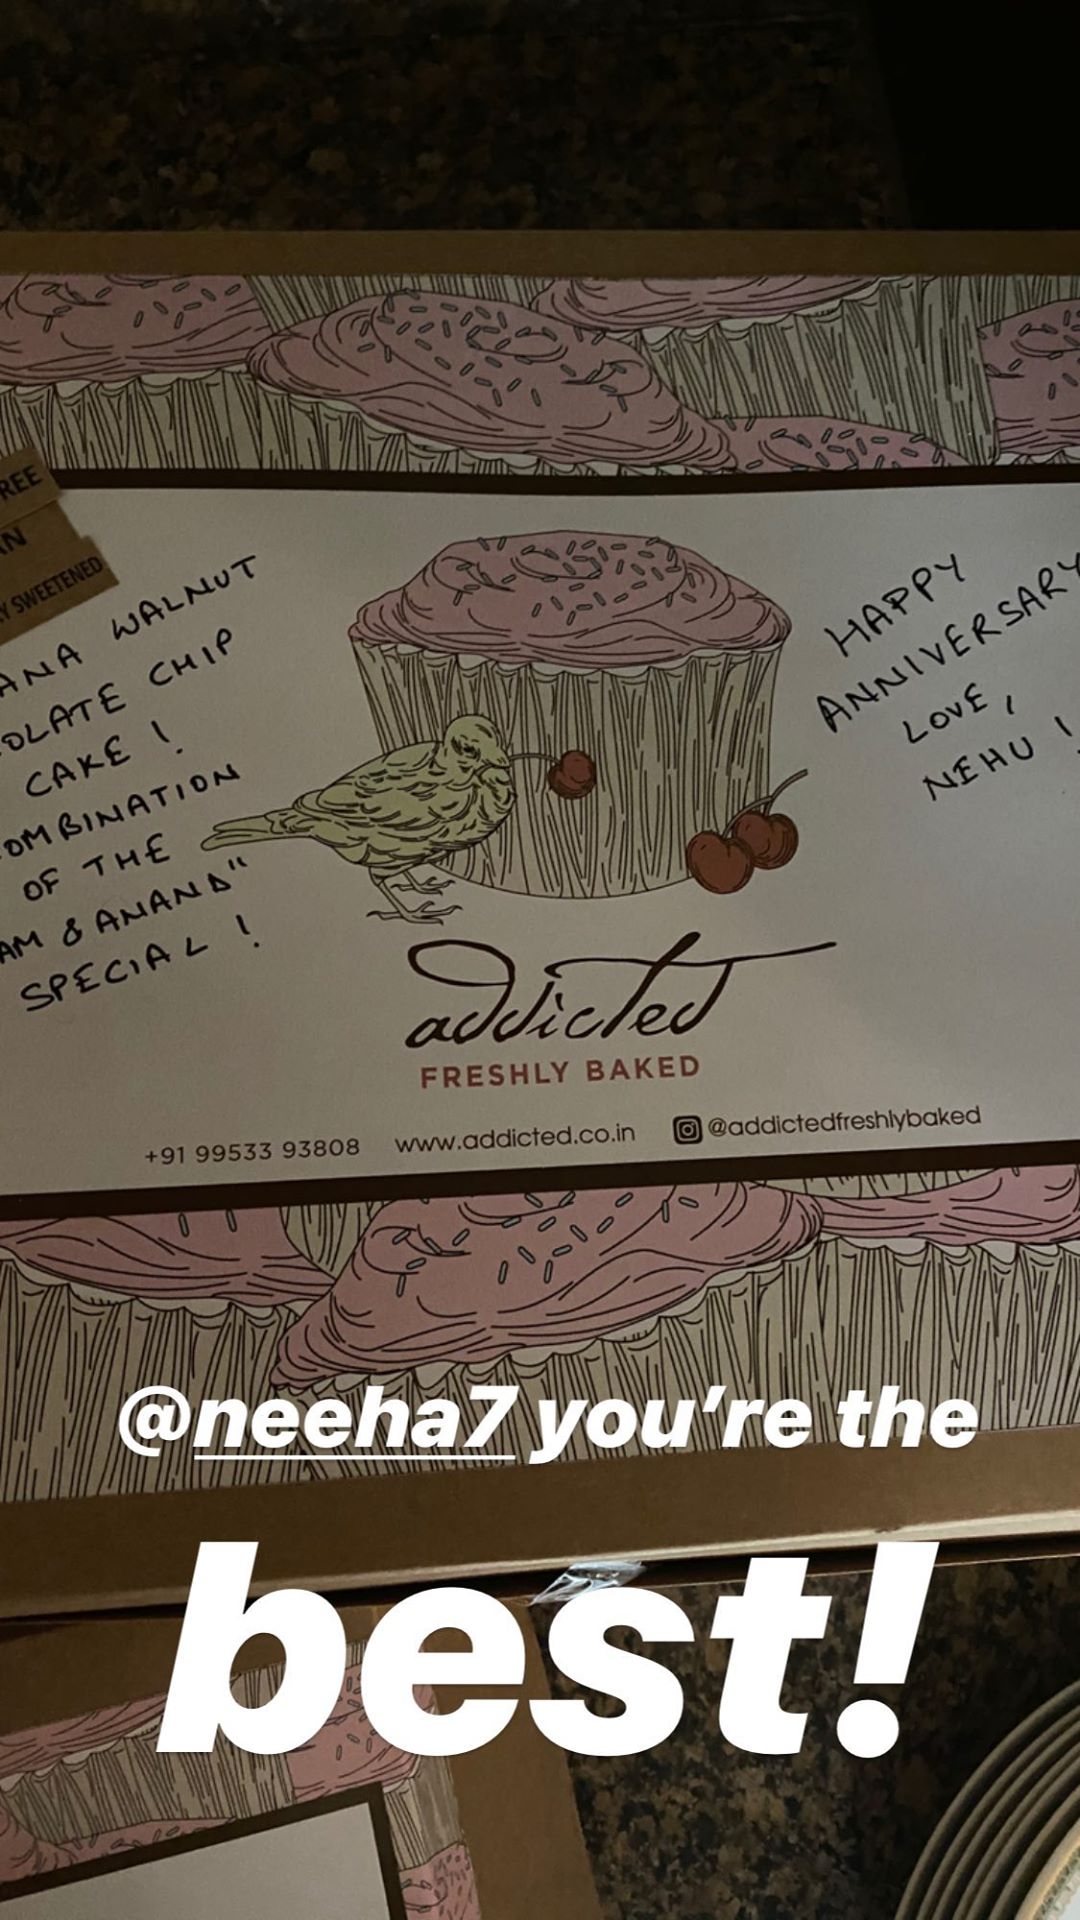 REE
AN
Y SWEETENED
ANA WALNUT
OLATE CHIP
CAKE !
OMBINATION
OF THE
AM & ANAND"
SPECIAL !
HAPPY
ANNIVERSARY
LOVE,
NEHU !
addicted
FRESHLY BAKED
+91 99533 93808 www.addicted.co.in @addictedfreshlybaked
@neeha7 you're the
best!